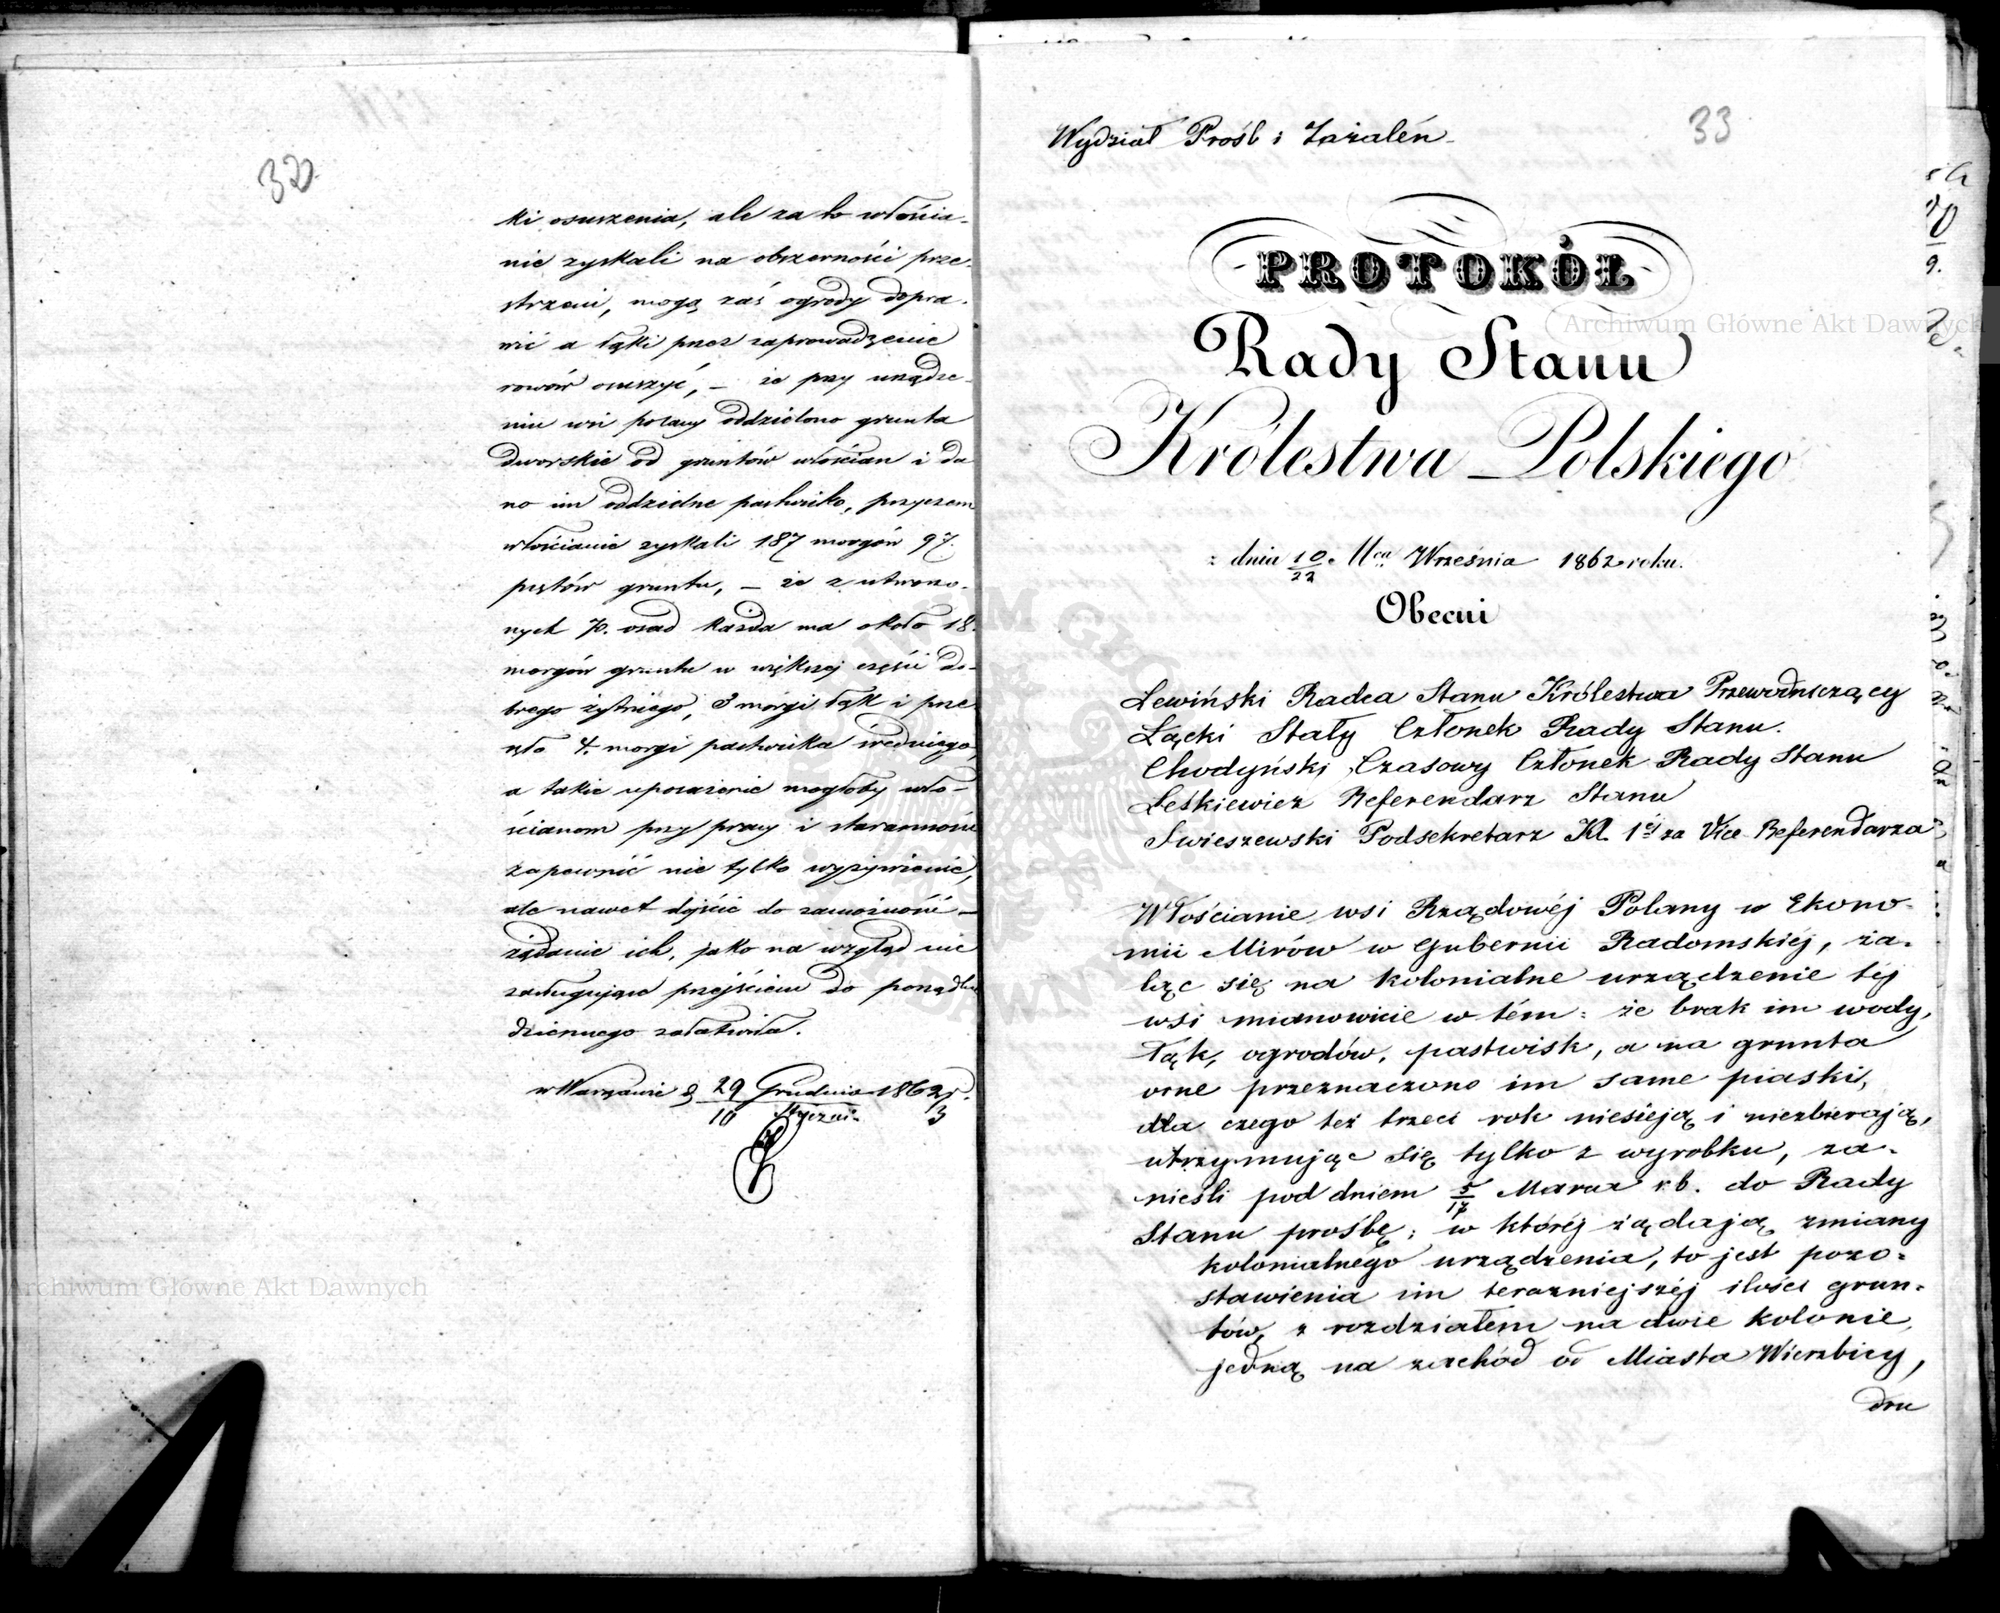 32
ki osuszenia, ale za to włościa-
nie zyskali na obszerności prze-
strzeni, mogą zaś ogrody dopra-
wić a łąki przez zaprowadzenie
rowów osuszyć, – że przy urządze-
niu wsi polany oddzielono grunta
dworskie od gruntów włościan i da
no im oddzielne pastwisko, przyczem
włościanie zyskali 187 morgów 97.
prętów gruntu, – że z utworzo-
nych 70. osad każda ma około 18.
morgów gruntu w większej części do-
brego żytniego, 3 morgi łąk i prze
szło 4. morgi pastwiska średniego,
a takie uposażenie mogłoby wło-
ścianom przy pracy i staranności
zapewnić nie tylko wyżywienie,
ale nawet dojście do zamożności –
żądanie ich, jako na wzgląd nie
zasługujące przejściem do porządku
dziennego załatwiła.
w Warszawie d 29 Grudnia 1862 r.
10 Stycznia 3
Wydział Próśb i Zażaleń
33
PROTOKÓŁ
Rady Stanu
Królestwa Polskiego
z dnia 10/22 Mca Września 1862 roku.
Obecni
Lewiński Radca Stanu Królestwa Przewodniczący
Łącki Stały Członek Rady Stanu.
Chodyński Czasowy Członek Rady Stanu
Leśkiewicz Referendarz Stanu
Swieszewski Podsekretarz Kl. 1éj za Vice Referendarza
Włościanie wsi Rządowéj Polany w Ekono-
mii Mirów w Gubernii Radomskiéj, ża-
ląc się na kolonialne urządzenie téj
wsi mianowicie w tém: że brak im wody,
łąk, ogrodów, pastwisk, a na grunta
orne przeznaczono im same piaski,
dla czego też trzeci rok niesieją i niezbierają,
utrzymując się tylko z wyrobku, za-
nieśli pod dniem 5/17 Marca r.b. do Rady
Stanu prośbę; w któréj żądają zmiany
kolonialnego urządzenia, to jest pozo-
stawienia im terazniejszéj ilości grun-
tów, z rozdziałem na dwie kolonie,
jedną na zachód od Miasta Wierzbicy,
dru
Archiwum Główne Akt Dawnych
Archiwum Główne Akt Dawnych